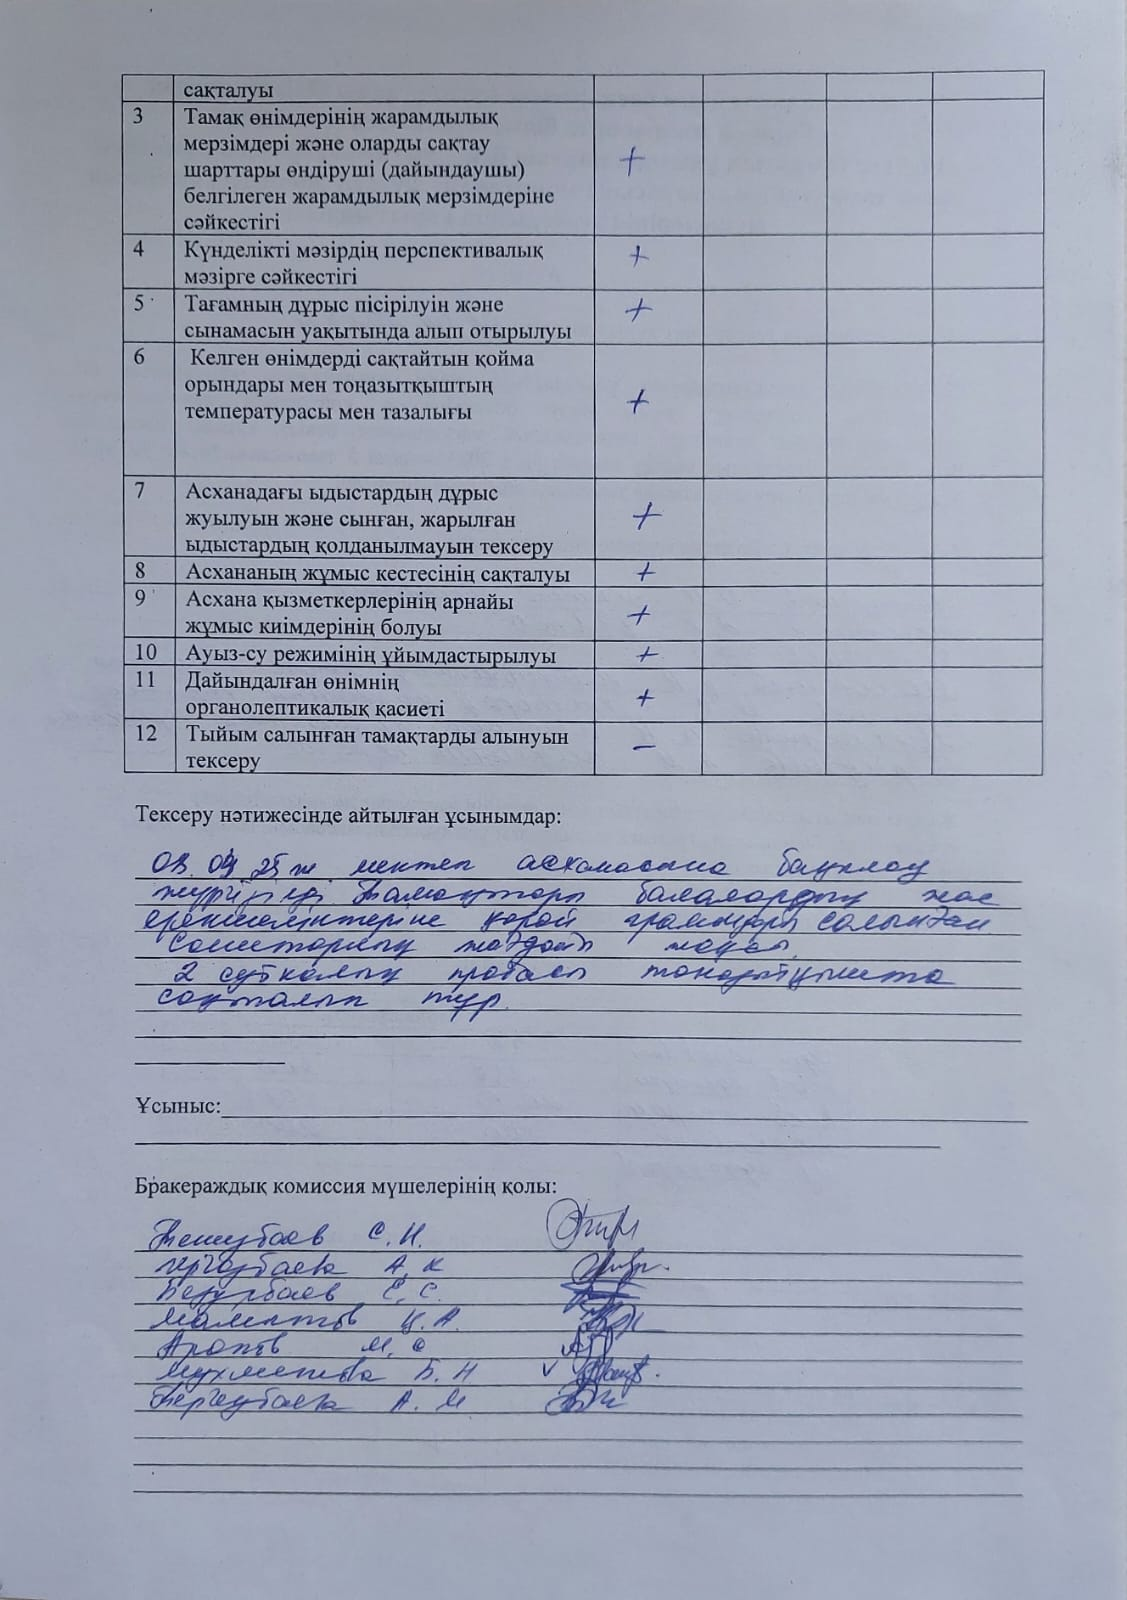 сақталуы
3 Тамақ өнімдерінің жарамдылық
мерзімдері және оларды сақтау
шарттары өндіруші (дайындаушы)
белгілеген жарамдылық мерзімдеріне
сәйкестігі +
4 Күнделікті мәзірдің перспективалық
мәзірге сәйкестігі +
5 Тағамның дұрыс пісірілуін және
сынамасын уақытында алып отырылуы +
6 Келген өнімдерді сақтайтын қойма
орындары мен тоңазытқыштың
температурасы мен тазалығы +
7 Асханадағы ыдыстардың дұрыс
жуылуын және сынған, жарылған
ыдыстардың қолданылмауын тексеру +
8 Асхананың жұмыс кестесінің сақталуы +
9 Асхана қызметкерлерінің арнайы
жұмыс киімдерінің болуы +
10 Ауыз-су режимінің ұйымдастырылуы +
11 Дайындалған өнімнің
органолептикалық қасиеті +
12 Тыйым салынған тамақтарды алынуын
тексеру –
Тексеру нәтижесінде айтылған ұсынымдар:
25 ж мектеп асханасына бақылау
жүргізілді Тамақтары балалардың жас
ерекшеліктеріне қарай граммдары салынған
Санитарлық жағдайы жақсы
2 суткалық пробасы тоңазытқышта
сақталып тұр.
Ұсыныс:
Бракераждық комиссия мүшелерінің қолы:
С. Н.
А. К
С. С.
Маметов
М. С
Б. Н
А. М